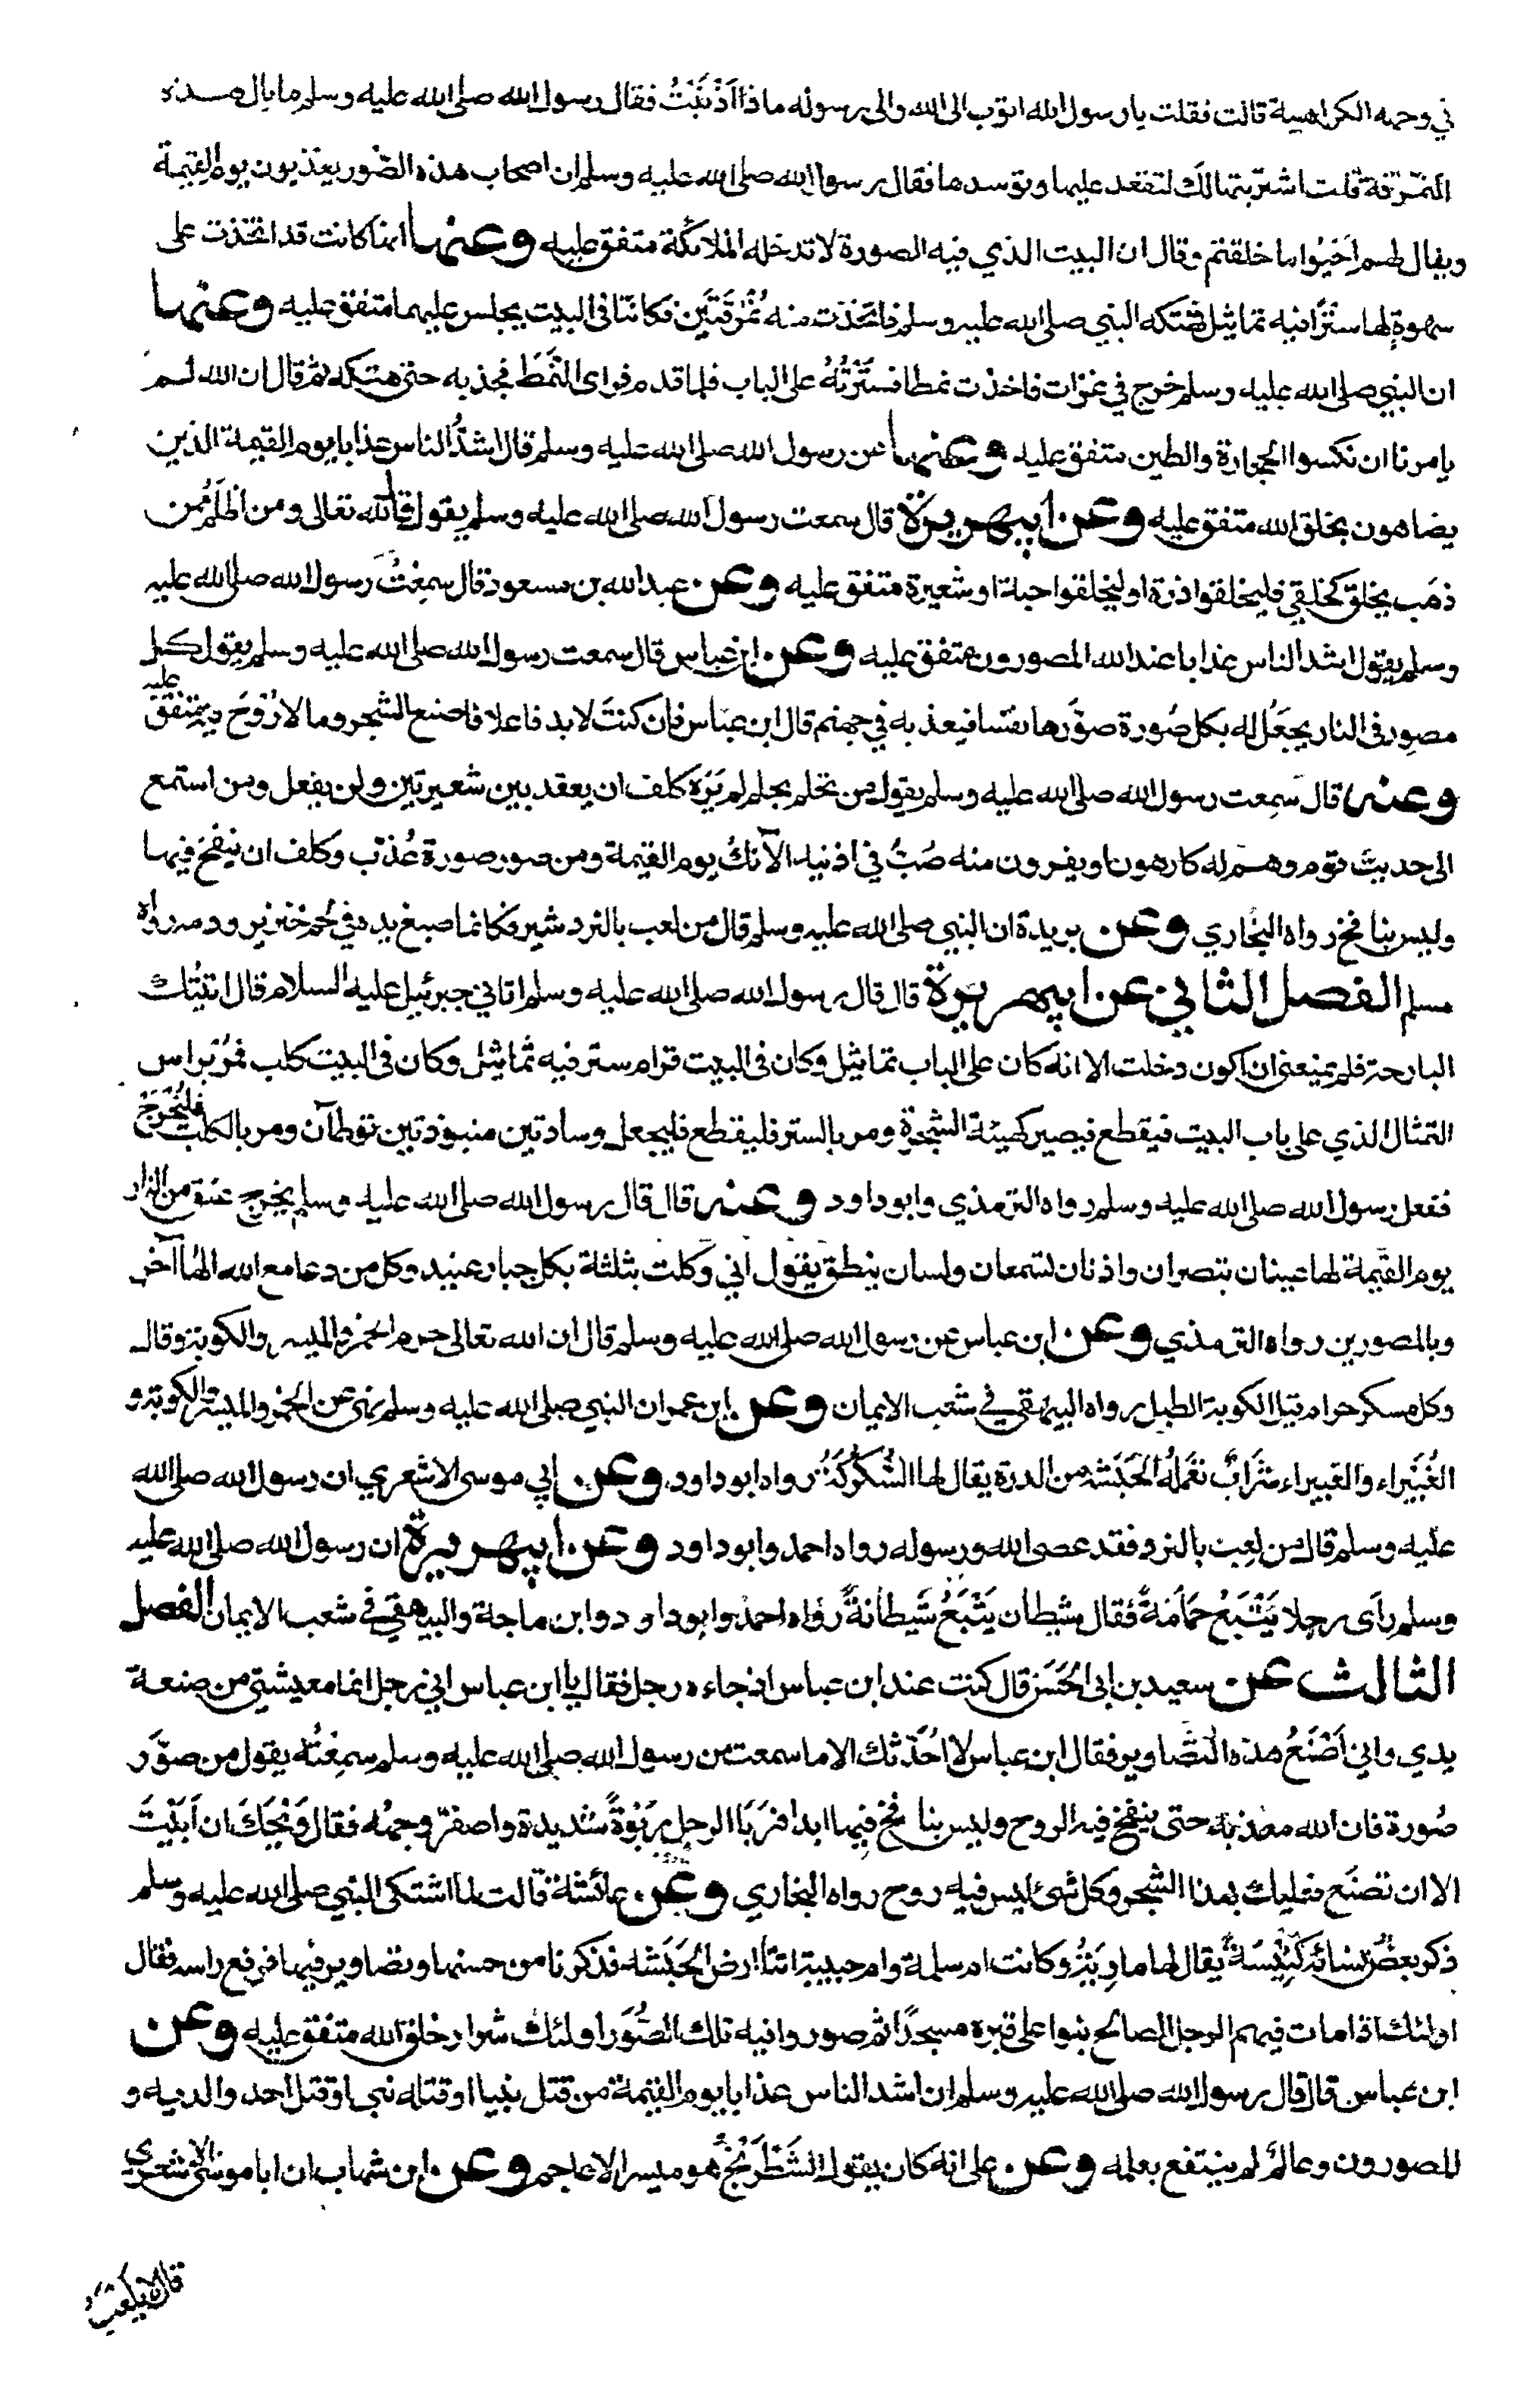 في وجهه الكراهية قالت فقلت يا رسول الله اتوب الى الله والى رسوله ماذا اَذْنَبْتُ فقال رسول الله صلى الله عليه وسلم ما بال هذه
النمرقة قلت اشتريتها لكَ لتقعد عليها وتوسدها فقال رسول الله صلى الله عليه وسلم ان اصحاب هذه الصُّور يعذبون يوم القيمة
ويقال لهم اَحْيُوا ما خلقتم وقال ان البيت الذي فيه الصورة لا تدخله الملائكة متفق عليه وعنها انها كانت قد اتخذت على
سهوةٍ لها سِتْرًا فيه تماثيل فهتكه النبي صلى الله عليه وسلم فاتخذت منه نُمْرُقَتَين فكانتا في البيت يجلس عليهما متفق عليه وعنها
ان النبي صلى الله عليه وسلم خرج في غزات فاخذت نمطا فسَتَرْتُهُ على الباب فلما قدم فراى النَّمَطَ فجذبه حتى هتكه ثم قال ان الله لم
يامرنا ان نكسوا الحجارة والطين متفق عليه وعنها عن رسول الله صلى الله عليه وسلم قال اشدُّ الناس عذابا يوم القيمة الذين
يضاهون بخلق الله متفق عليه وعن ابيهريرة قال سمعت رسول الله صلى الله عليه وسلم يقول قال الله تعالى ومن اَظْلَمُ ممن
ذهَب يخلق كخلقي فليخلقوا ذرة او ليخلقوا حبة او شعيرة متفق عليه وعن عبد الله بن مسعود قال سمِعْتُ رسول الله صلى الله عليه
وسلم يقول اشد الناس عذابا عند الله المصورون متفق عليه وعن ابن عباس قال سمعت رسول الله صلى الله عليه وسلم يقول كل
مصوِر في النار يجعَلُ له بكل صُورة صوَّرها نفسا فيعذبه في جهنم قال ابن عباس فان كنتَ لابد فاعلا فاصنع الشجر وما لا رُوْحَ فيه متفق عليه
وعنه قال سَمِعت رسول الله صلى الله عليه وسلم يقول من تحلم بحلم لم يَرَه كلف ان يعقد بين شعيرتين ولن يفعل ومن استمع
الى حديث قوم وهم له كارهون او يفرون منه صُبَّ في اذنيه الآنكُ يوم القيمة ومن صور صورة عُذب وكلف ان ينفخ فيها
وليس بنافخ رواه البخاري وعن بريدة ان النبي صلى الله عليه وسلم قال من لعب بالنردشير فكانما صبغ يده في لحم خنزير ودمه رواه
مسلم الفصل الثاني عن ابيهريرة قال قال رسول الله صلى الله عليه وسلم اتاني جبرئيل عليه السلام قال اتيتُك
البارحة فلم يمنعني ان اكون دخلت الا انه كان على الباب تماثيل وكان في البيت قرام ستر فيه تماثيل وكان في البيت كلب فمُرْ براس
التمثال الذي على باب البيت فيقطع فيصير كهيئة الشجرة ومر بالستر فليقطع فليجعل وسادتين منبوذتين توطآن ومر بالكلب فليُخْرَجْ
ففعل رسول الله صلى الله عليه وسلم رواه الترمذي وابوداود وعنه قال قال رسول الله صلى الله عليه وسلم يخرج عنق من النار
يوم القيمة لها عينان تبصران واذنان تسمعان ولسان ينطق يقول اني وكلت بثلثة بكل جبار عنيد وكل من دعا مع الله الها آخر
وبالمصورين رواه الترمذي وعن ابن عباس عن رسول الله صلى الله عليه وسلم قال ان الله تعالى حرم الخمر والميسر والكوبة وقال
وكل مسكر حرام قيل الكوبة الطبل رواه البيهقي في شعب الايمان وعن ابن عمر ان النبي صلى الله عليه وسلم نهى عن الخمر والميسر والكوبة و
الغُبَيراء والغبيراء شَرابٌ تعْمَلُه الحَبَشة من الذرة يقال لها السُّكُرْكَةُ رواه ابوداود وعن ابي موسى الاشعري ان رسول الله صلى الله
عليه وسلم قال من لعِب بالنرد فقد عصى الله ورسوله رواه احمد وابوداود وعن ابيهريرة ان رسول الله صلى الله عليه
وسلم راَى رجلا يَتْبَعُ حَمَامَةً فقال شيطان يَتْبَعُ شَيطانةً رواه احمد وابوداود وابن ماجة والبيهقي في شعب الايمان الفصل
الثالث عن سعيد بن ابي الحَسَن قال كنت عند ابن عباس اذ جاءه رجل فقال يا ابن عباس اني رجل انما معيشتي من صنعة
يدي واني اَصْنَعُ هذه التصَاوير فقال ابن عباس لا اُحَدّثك الا ما سمعت من رسول الله صلى الله عليه وسلم سمِعْتُه يقول من صوَّر
صُورة فان الله معذبه حتى ينفخ فيه الروح وليس بنافخ فيها ابدا فرَبَا الرجل رَبْوَةً شديدة واصفرّ وجهُه فقال وَيْحَكَ ان اَبَيْتَ
الا ان تصنَع فعليك بهذا الشجر وكل شئ ليس فيه روح رواه البخاري وعن عائشة قالت لما اشتكى النبي صلى الله عليه وسلم
ذكر بعضُ نسائه كَنِيْسَةً يقال لها مارِيَةُ وكانت ام سلمة وام حبيبة اتتا ارض الحَبَشة فذكرنا من حسنها وتصاوير فيها فرفع راسه فقال
اولئك اذا مات فيهم الرجل الصالح بنوا على قبره مسجدًا ثم صوروا فيه تلك الصُّوَر اولئك شرار خلق الله متفق عليه وعن
ابن عباس قال قال رسول الله صلى الله عليه وسلم ان اشد الناس عذابا يوم القيمة من قتل نبيا او قتله نبي او قتل احد والديه و
المصورون وعالمٌ لم ينتفع بعلمه وعن علي انه كان يقول الشَطْرَنْجُ هو ميسر الاعاجم وعن ابن شهاب ان ابا موسى الاشعري
قال لا يلعب